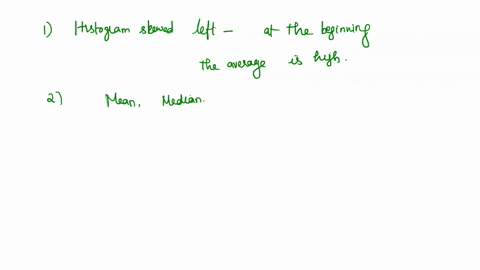 1) Histogram skewed left – at the beginning
the average is high.
2) Mean, Median.